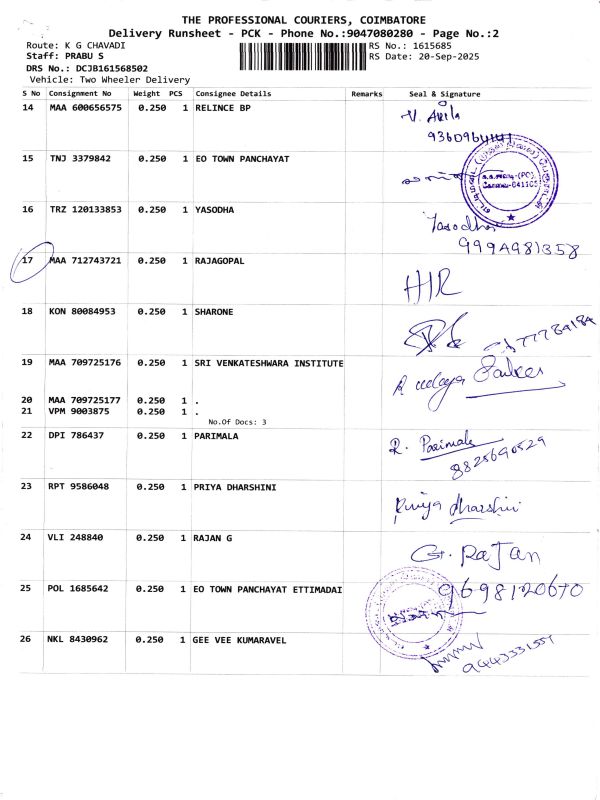 THE PROFESSIONAL COURIERS, COIMBATORE
Delivery Runsheet - PCK - Phone No.:9047080280 - Page No.:2
Route: K G CHAVADI
RS No.: 1615685
Staff: PRABU S
RS Date: 20-Sep-2025
DRS No.: DCJB161568502
Vehicle: Two Wheeler Delivery
S No Consignment No Weight PCS Consignee Details Remarks Seal & Signature
14 MAA 600656575 0.250 1 RELINCE BP
15 TNJ 3379842 0.250 1 EO TOWN PANCHAYAT
16 TRZ 120133853 0.250 1 YASODHA
Yasodha
17 MAA 712743721 0.250 1 RAJAGOPAL
H/R
18 KON 80084953 0.250 1 SHARONE
19 MAA 709725176 0.250 1 SRI VENKATESHWARA INSTITUTE
20 MAA 709725177 0.250 1 .
21 VPM 9003875 0.250 1 .
No.Of Docs: 3
22 DPI 786437 0.250 1 PARIMALA
R. Parimala
8825690529
23 RPT 9586048 0.250 1 PRIYA DHARSHINI
Priya dharshini
24 VLI 248840 0.250 1 RAJAN G
G. RaJan
9698120670
25 POL 1685642 0.250 1 EO TOWN PANCHAYAT ETTIMADAI
26 NKL 8430962 0.250 1 GEE VEE KUMARAVEL